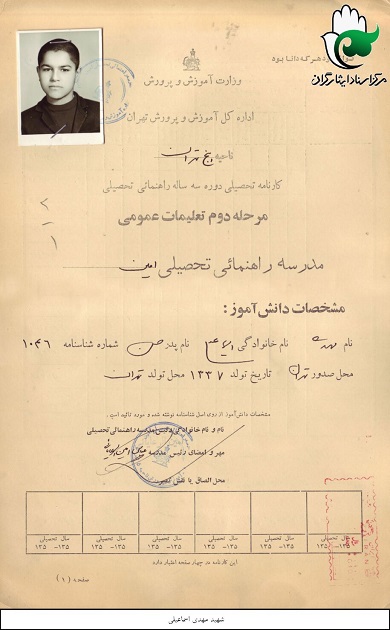 توانا بود هر که دانا بود
مرکز اسناد ایثارگران
وزارت آموزش و پرورش
اداره کل آموزش و پرورش تهران
ناحیه پنج تهران
کارنامه تحصیلی دوره سه ساله راهنمائی تحصیلی
مرحله دوم تعلیمات عمومی
مدرسه راهنمائی تحصیلی امین
مشخصات دانش آموز:
نام مهدی نام خانوادگی اسماعیلی نام پدر حسن شماره شناسنامه ۱۰۴۶
محل صدور تهران تاریخ تولد ۱۳۳۷ محل تولد تهران
مشخصات دانش‌آموز از روی اصل شناسنامه نوشته شده و مورد تائید است.
نام و نام خانوادگی رئیس مدرسه راهنمائی تحصیلی
مهر و امضای رئیس مدرسه
محل الصاق یا نقش تمبر
سال تحصیلی سال تحصیلی سال تحصیلی سال تحصیلی سال تحصیلی سال تحصیلی
۱۳۵ -۱۳۵ ۱۳۵ -۱۳۵ ۱۳۵ -۱۳۵ ۱۳۵ -۱۳۵ ۱۳۵ -۱۳۵ ۱۳۵ -۱۳۵
این کارنامه در چهار صفحه اعتبار دارد
صفحه (۱)
شهید مهدی اسماعیلی